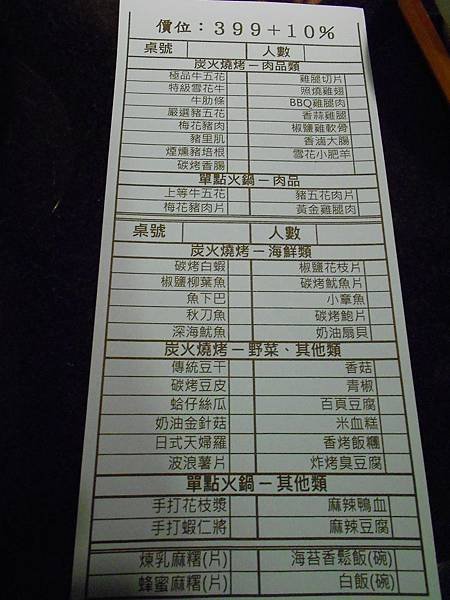 價位：399+10%
桌號 人數
炭火燒烤－肉品類
極品牛五花 雞腿切片
特級雪花牛 照燒雞翅
牛肋條 BBQ雞腿肉
嚴選豬五花 香蒜雞腿
梅花豬肉 椒鹽雞軟骨
豬里肌 香滷大腸
煙燻豬培根 雪花小肥羊
碳烤香腸
單點火鍋－肉品
上等牛五花 豬五花肉片
梅花豬肉片 黃金雞腿肉
桌號 人數
炭火燒烤－海鮮類
碳烤白蝦 椒鹽花枝片
椒鹽柳葉魚 碳烤魷魚片
魚下巴 小章魚
秋刀魚 碳烤鮑片
深海魷魚 奶油扇貝
炭火燒烤－野菜、其他類
傳統豆干 香菇
碳烤豆皮 青椒
蛤仔絲瓜 百頁豆腐
奶油金針菇 米血糕
日式天婦羅 香烤飯糰
波浪薯片 炸烤臭豆腐
單點火鍋－其他類
手打花枝漿 麻辣鴨血
手打蝦仁將 麻辣豆腐
煉乳麻糬(片) 海苔香鬆飯(碗)
蜂蜜麻糬(片) 白飯(碗)